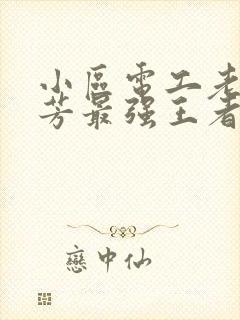 小區電工老
芳最强王者
戀中仙